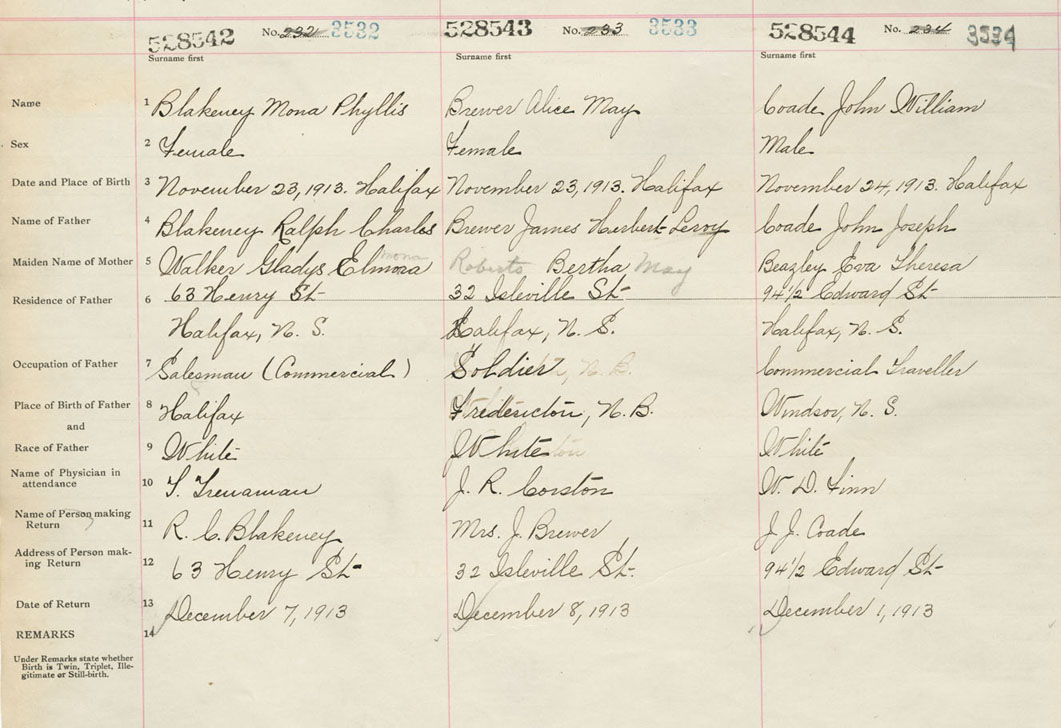 528542 No. 232 3532 528543 No. 233 3533 528544 No. 234 3534
Surname first Surname first Surname first
Name 1 Blakeney Mona Phyllis Brewer Alice May Coade John William
Sex 2 Female Female Male
Date and Place of Birth 3 November 23, 1913. Halifax November 23, 1913. Halifax November 24, 1913. Halifax
Name of Father 4 Blakeney Ralph Charles Brewer James Herbert Leroy Coade John Joseph
Maiden Name of Mother 5 Walker Gladys Elmora mona Roberts Bertha May Beazley Eva Theresa
Residence of Father 6 63 Henry St 32 Isleville St 94 1/2 Edward St
Halifax, N. S. Halifax, N. S. Halifax, N. S.
Occupation of Father 7 Salesman (Commercial) Soldier, N. B. Commercial Traveller
Place of Birth of Father 8 Halifax Fredericton, N. B. Windsor, N. S.
and
Race of Father 9 White White White
Name of Physician in
attendance 10 T. Trenaman J. R. Corston W. D. Finn
Name of Person making
Return 11 R. C. Blakeney Mrs. J. Brewer J. J. Coade
Address of Person mak-
ing Return 12 63 Henry St- 32 Isleville St. 94 1/2 Edward St
Date of Return 13 December 7, 1913 December 8, 1913 December 1, 1913
REMARKS 14
Under Remarks state whether
Birth is Twin, Triplet, Ille-
gitimate or Still-birth.